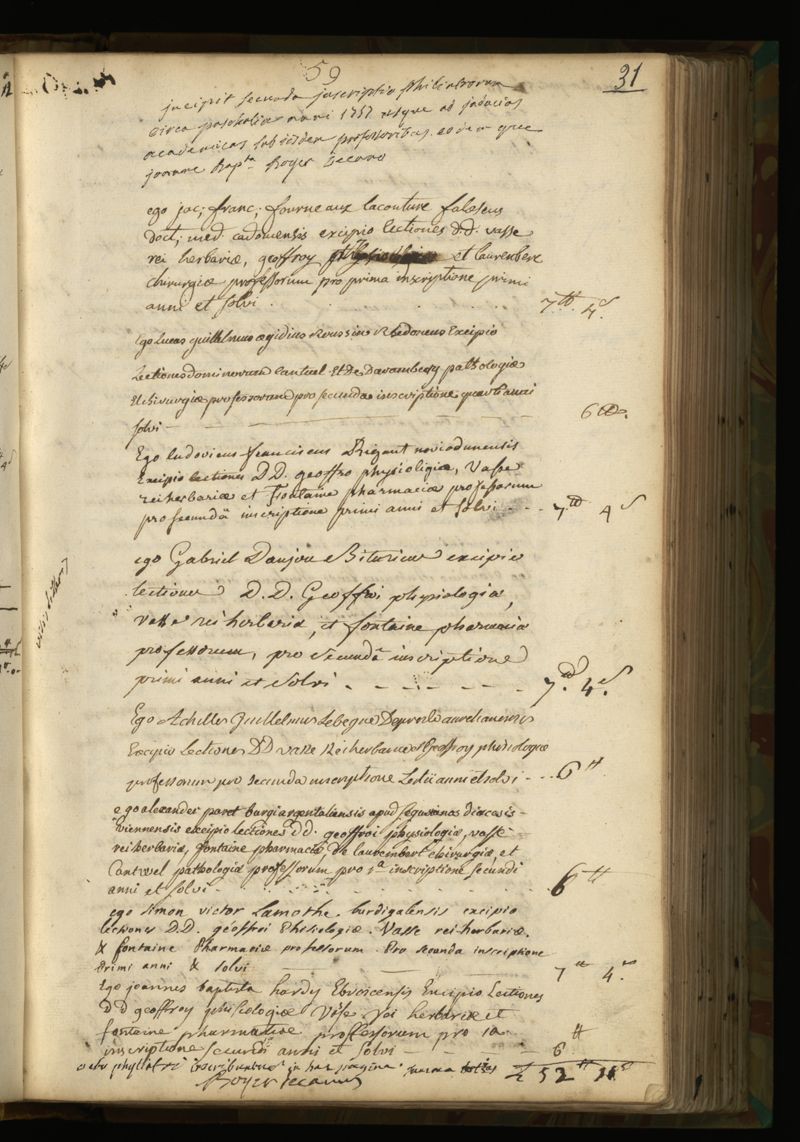 59
31
incipit secunda inscriptio philiatrorum
circa paschalia anni 1757 usque ad
academicas sub iisdem professoribus eodemque
joanne Bapta Boyer Decano
ego jac; franc; fourneaux lacouture
doct; med. cadomensis excipio lectiones d.d. vasse
rei herbariæ, geoffroy et laurembert
chirurgiæ professorum pro prima inscriptione primi
anni et solvi 7tt 4s
Ego Lucas guillelmus ægidius Rhedoneus Excipio
Lectiones dominorum Cantuel Et De pathologiæ
Et chirurgiæ professorum pro secunda inscriptione quarti anni
solvi 6tt
Ego ludovicus franciscus Rigaut noviodunensis
Excipio lectiones D.D. geoffro physioligiæ, Vasse
rei herbariæ et Fontaine pharmaciæ professorum
pro secundâ inscriptione primi anni et solvi 7tt 4s
ego Gabriel Danjou Bituricus excipio
lectiones D.D. Geoffroi physiologiæ,
vasse rei herbariæ, et fontaine pharmaciæ
professorum, pro secundâ inscriptione
primi anni et solvi 7tt 4s
Ego Achilles Guillelmus Lebegue Depresle aurelianensis
Excipio Lectiones DD vasse Rei herbariæ et Geoffroy phisiologiæ
professorum pro secunda inscriptione anni et solvi 6tt
ego alexander paret burgiargentaliensis apud segusianos diœcesis
viennensis excipio lectiones dd. geoffroi physiologiæ, vasse
rei herbariæ, fontaine pharmaciæ De laurembert chirurgiæ, et
Cantwel pathologiæ professorum pro 1a inscriptione secundi
anni et solvi 6tt
ego simon victor Lamothe. burdigalensis excipio
lectiones D.D. geoffroi Phisiologiæ. Vasse rei-herbariæ.
& fontaine Pharmaciæ professorum. Pro secunda inscriptione
primi anni & solvi 7tt 4s
Ego joannes baptista hardy Ebroicensis Excipio Lectiones
D D geoffroy phisiologiæ Vasse rei herbariæ et
fontaine pharmaciæ professorum pro 1a
inscriptione secundi anni et solvi 6tt
octo inscribuntur in hac pagina summa 52tt
Boyer decanus